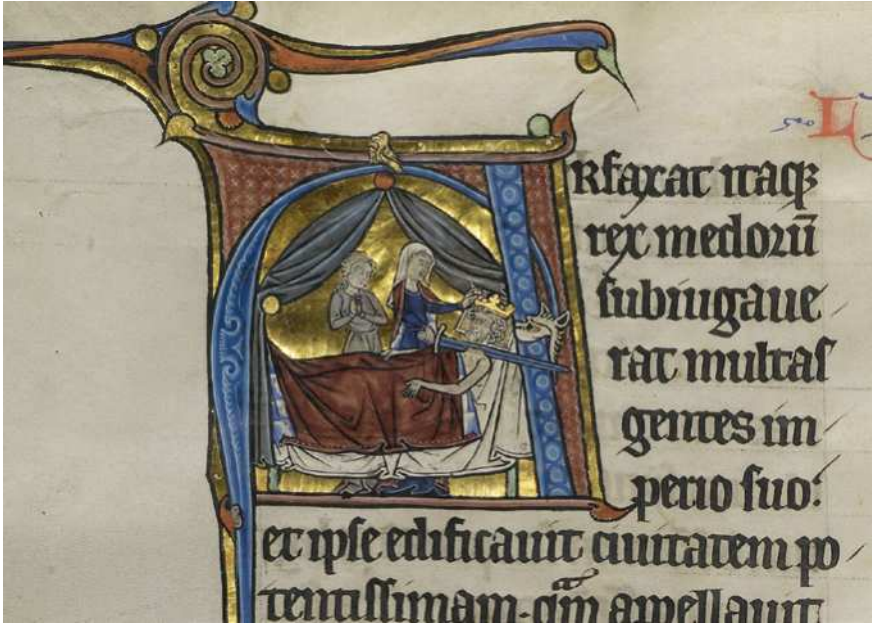 ARfaxat itaqꝫ
rex medorū
subiugaue
rat multas
gentes im
perio suo:
et ipse edificauit ciuitatem po
tentissimam. quā appellauit
L